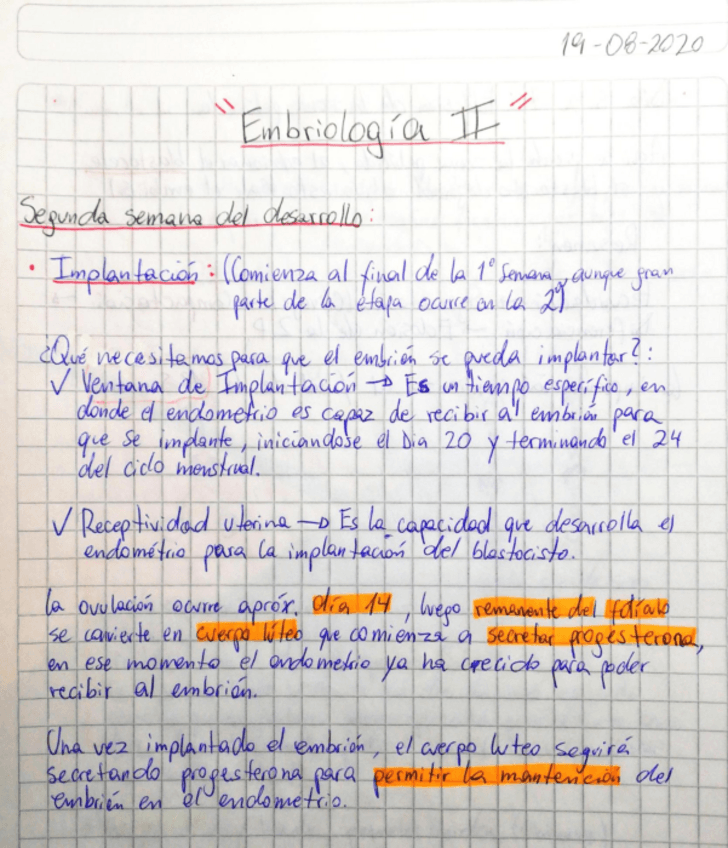 19-08-2020
"Embriología II"
Segunda semana del desarrollo:
• Implantación: (Comienza al final de la 1° Semana, aunque gran
parte de la etapa ocurre en la 2°)
¿Qué necesitamos para que el embrión se pueda implantar?:
✓ Ventana de Implantación → Es un tiempo específico, en
donde el endometrio es capaz de recibir al embrión para
que se implante, iniciandose el Dia 20 y terminando el 24
del ciclo menstrual.
✓ Receptividad uterina → Es la capacidad que desarrolla el
endométrio para la implantación del blastocisto.
La ovulación ocurre apróx. día 14, luego remanente del folículo
se convierte en cuerpo lúteo que comienza a secretar progesterona,
en ese momento el endometrio ya ha crecido para poder
recibir al embrión.
Una vez implantado el embrión, el cuerpo luteo seguirá
secretando progesterona para permitir la mantención del
embrión en el endometrio.